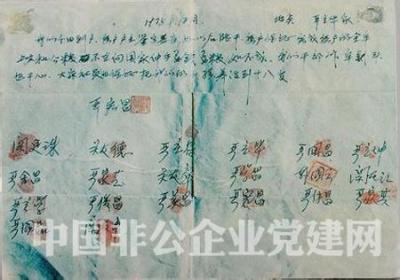 1978年12月 地点 严立华家
我们分田到户,每户户主签字盖章,如以后能干,每户保证完成每户的全年
上交和公粮,不在向国家伸手要钱要粮。如不成,我们干部作牢刹头
也干心,大家社员也保证把我们的小孩养活到十八岁
严宏昌
关廷珠 关友德 严立符 严立华 严国昌 严立坤
严金昌 严家芝 关友章 严学昌 韩国云 关友江
严立学 严俊昌 严美昌 严宏昌 严付昌 严家其
严国品
中国非公企业党建网